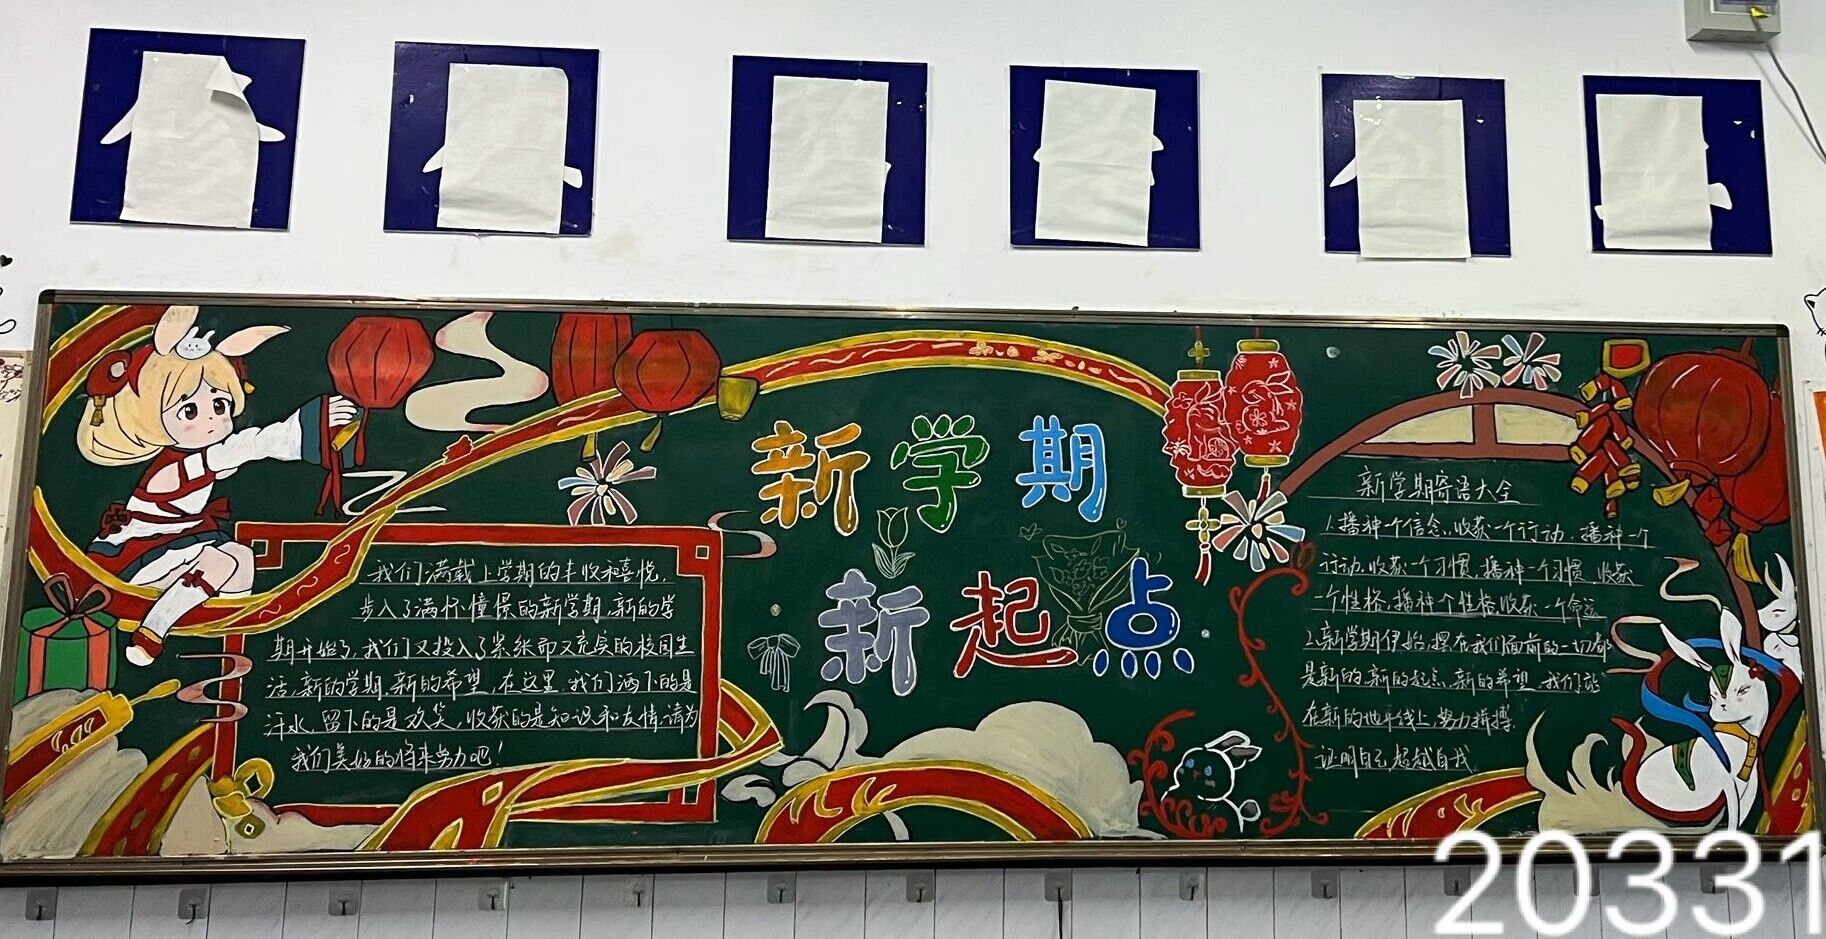 新学期
新起点
我们满载上学期的丰收和喜悦，
步入了满怀憧憬的新学期，新的学
期开始了，我们又投入了紧张而又充实的校园生
活，新的学期，新的希望，在这里，我们洒下的是
汗水，留下的是欢笑，收获的是知识和友情，请为
我们美好的将来努力吧！
新学期寄语大全
1.播种一个信念，收获一个行动，播种一个
行动，收获一个习惯，播种一个习惯，收获
一个性格，播种个性格，收获一个命运
2.新学期伊始，摆在我们面前的一切都
是新的，新的起点，新的希望，我们能
在新的地平线上，努力拼搏，
证明自己，超越自我
20331